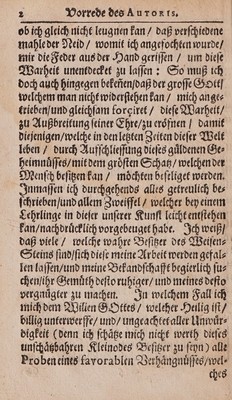 2 Vorrede des AUTORIS.
ob ich gleich nicht leugnen kan/ daß verschiedene
mahle der Neid/ womit ich angefochten wurde/
mir die Feder aus der Hand gerissen/ um diese
Warheit unentdecket zu lassen: So muß ich
doch auch hingegen bekeñen/daß der grosse Gott/
welchem man nicht widerstehen kan/ mich ange-
trieben/und gleichsam forçiret/ diese Warheit/
zu Außbreitung seiner Ehr/zu eröffnen/ damit
diejenigen/welche in den letzten Zeiten dieser Welt
leben/ durch Aufschliessung dieses güldenen Ge-
heimnüsses/mit dem grösten Schatz/welchen der
Mensch besitzen kan/ möchten beseliget werden.
Inmassen ich durchgehends alles getreulich be-
schrieben/und allem Zweiffel/ welcher bey einem
Lehrlinge in dieser unserer Kunst leicht entstehen
kan/nachdrücklich vorgebeuget habe. Ich weiß/
daß viele/ welche wahre Besitzer des Weisen-
Steins sind/sich diese meine Arbeit werden gefal-
len lassen/und meine Bekandschafft begierlich su-
chen/ihr Gemüth desto ruhiger/und meines desto
vergnügter zu machen. In welchem Fall ich
mich dem Willen GOttes/ welcher Heilig ist/
billig unterwerffe/ und/ ungeachtet aller Unwür-
digkeit (denn ich schätze mich nicht werth dieses
unschätzbahren Kleinodes Besitzer zu seyn) alle
Proben eines favorablen Verhängnüsses/wel-
ches